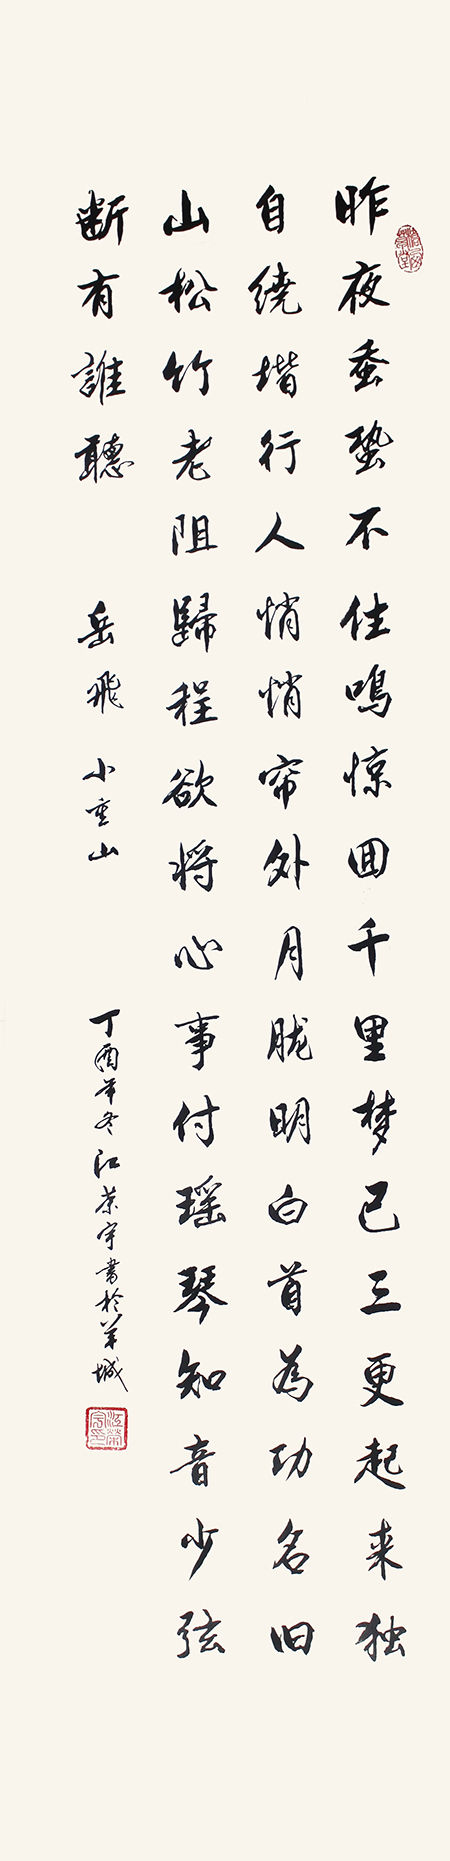 昨夜蚕蛩不住鳴惊回千里梦已三更起来独
自繞堦行人悄悄帘外月胧明白首為功名旧
山松竹老阻歸程欲将心事付瑶琴知音少弦
断有誰聽 岳飛 小重山 丁酉年冬江荣宇書於羊城